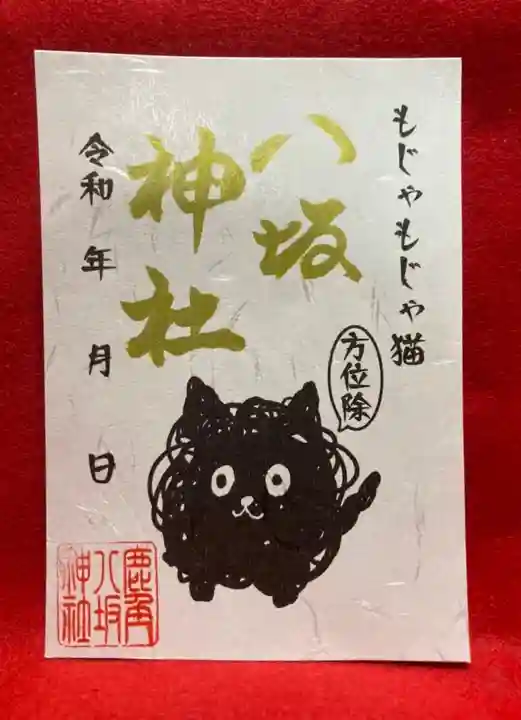 もじゃもじゃ猫
方位除
八坂
神社
令和 年 月 日
鹿角
八坂
神社